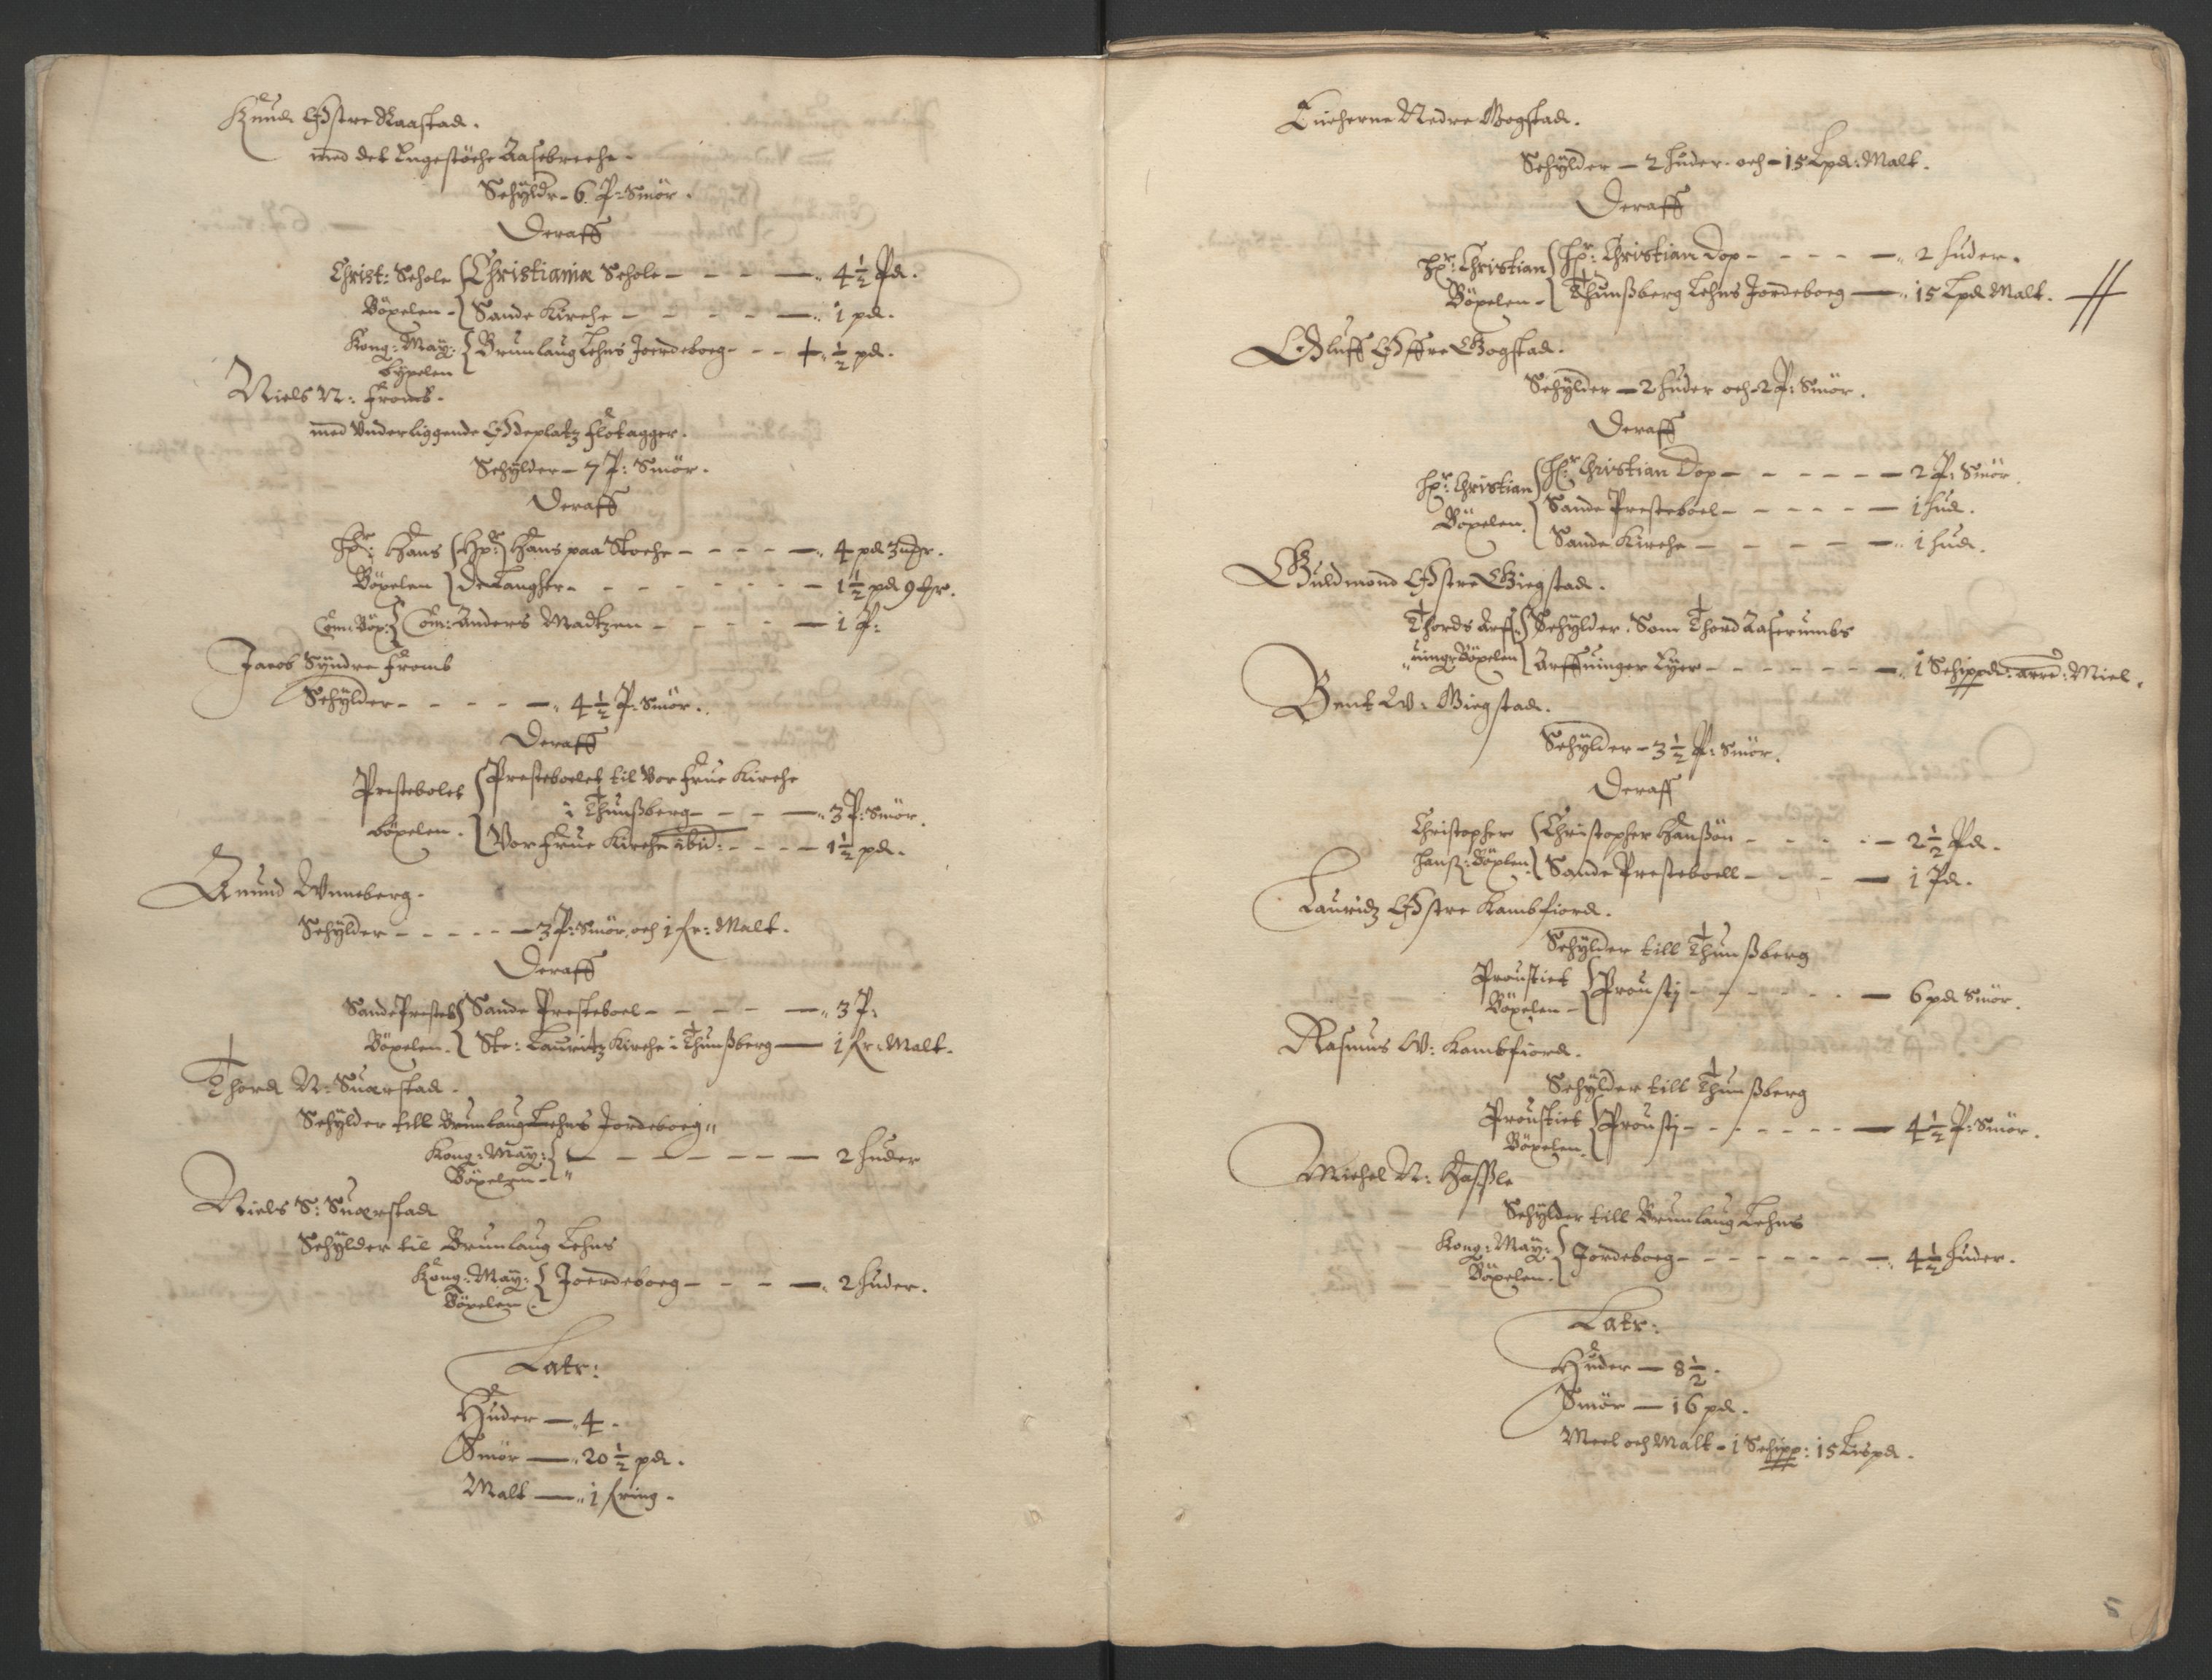 Knud Østre Raastad.
med det Engestöche Aasebreche.
Schyldr - 6 P: Smör.
Deraff
Christ: Schole { Christianiæ Schole - - - — 4½ Pd.
Böxelen - { Sande Kirche - - - - — 1 pd.
Kong: May: { Brunlaug Lehns Joerdeboeg - - - ½ pd.
Byxelen
Niels N: Fromb.
med Underliggende Ødeplatz Flotagger.
Schylder - 7 P: Smör.
Deraff
Hr: Hans { Hr: Hans paa Stoche - - - — 4 pd
Böxelen { - - - - - - — 1½ pd 9
Böx: { Anders Madtzen - - - - — 1 P:
Jacob Syndre Fromb
Schylder - - - - — 4½ P: Smör.
Deraff
Presteboles { Presteboelet til Vor Frue Kirche
i Thunßberg - - - — 3 P: Smör.
böxelen. { Vor Frue Kirche ibid: - - - - 1½ pd.
Amund Wnneberg.
Schylder - - - - - — 3 P: Smör, och 1 fr: Malt.
Deraff
Sande Presteb { Sande Presteboel - - - - — 3 P:
Böxelen. { Ste: Lauritz Kirche i Thunßberg — 1 fr: Malt.
Thord N: Suærstad.
Schylder till Brunlaug Lehns Jordeboeg
Kong: May: { - - - - - - - — 2 huder
Böxelen -
Niels S: Suærstad
Schylder til Brunlaug Lehns
Kong: May: { Joerdeboeg - - - — 2 huder.
Böxelen.
Latr:
Huder — 4.
Smör — 20½ pd.
Malt — 1 fring.
Nedre Gogstad.
Schylder — 2 huder och - 15 Lpd: Malt.
Deraff
Hr: Christian { Hr: Christian Dop - - - - — 2 huder.
Böxelen - { Thunßberg Lehns Jordeboeg — 15 Lpd Malt.
Oluff Øffre Gogstad.
Schylder — 2 huder och - 2 P: Smör.
Deraff
Hr: Christian { Hr: Christian Dop - - - - - — 2 P: Smör.
Böxelen. { Sande Presteboel - - - - - — 1 hud.
Sande Kirche - - - - - — 1 hud.
Guldmond Østre Giegstad.
Thords Arff: { Schylder. Som Thord Aaserumbs
uingr Böxelen { Arffuinger Eyer - - - - - — 1 Schippd: Miel.
Bent W: Giegstad.
Schylder - 3½ P: Smör.
Deraff
Christopher { Christopher Hanßön - - - - — 2½ Pd.
Hanß: Böxlen { Sande Presteboell - - - - — 1 Pd.
Lauridz Østre Kambfiord.
Schylder till Thunßberg
Proustiet { Prousti - - - - - - - — 6 pd Smör.
Böxelen -
Rasmus W: Kambfiord.
Schylder till Thunßberg
Proustiet { Prousti - - - - - - - — 4½ P: Smör.
Böxelen.
Michel N: Haßle
Schylder till Brunlaug Lehns
Kong: May: { Jordeboeg - - - - - - - — 4½ huder.
Böxelen.
Latr:
Huder — 8½.
Smör — 16 pd.
Meel och Malt - 1 Schipp: 15 Lispd.
5